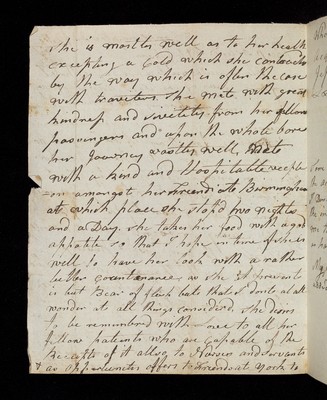 She is mostly well as to her health
excepting a Cold which she contracted
by the way which is often the case
with travellers. She met with great
kindness and civilities from her fellow
passengers and upon the whole bore
her Journey vastly well, Met
with a kind and Hospitable recep
on amongst her Friends At Birmingham
at which place she stop'd two nights
and a Day. She takes her food with a good
appatite so that I hope in time if she is
well to have her look with a rather
better countenance, as she at present
is but Bear of flesh but that I don't at all
wonder at all things considerd. She desires
to be rememberd with me to all her
fellow patients who are Capable of the
Receipts of it allso to Nurses and Servants
as oppertunities offers to Friends at York